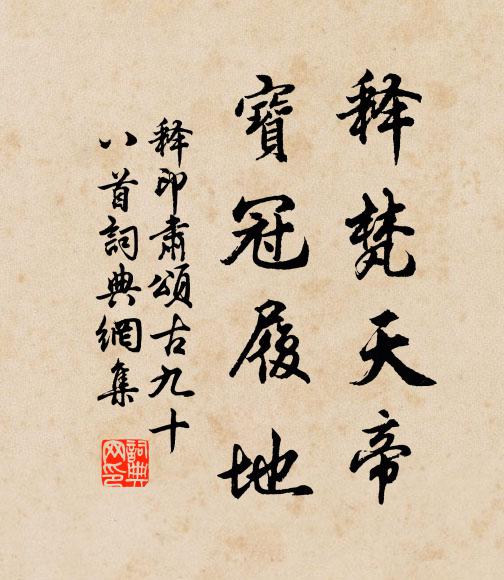 释梵天帝
寶冠履地
释印肅頌古九十
八首詞典網集
詞典网印